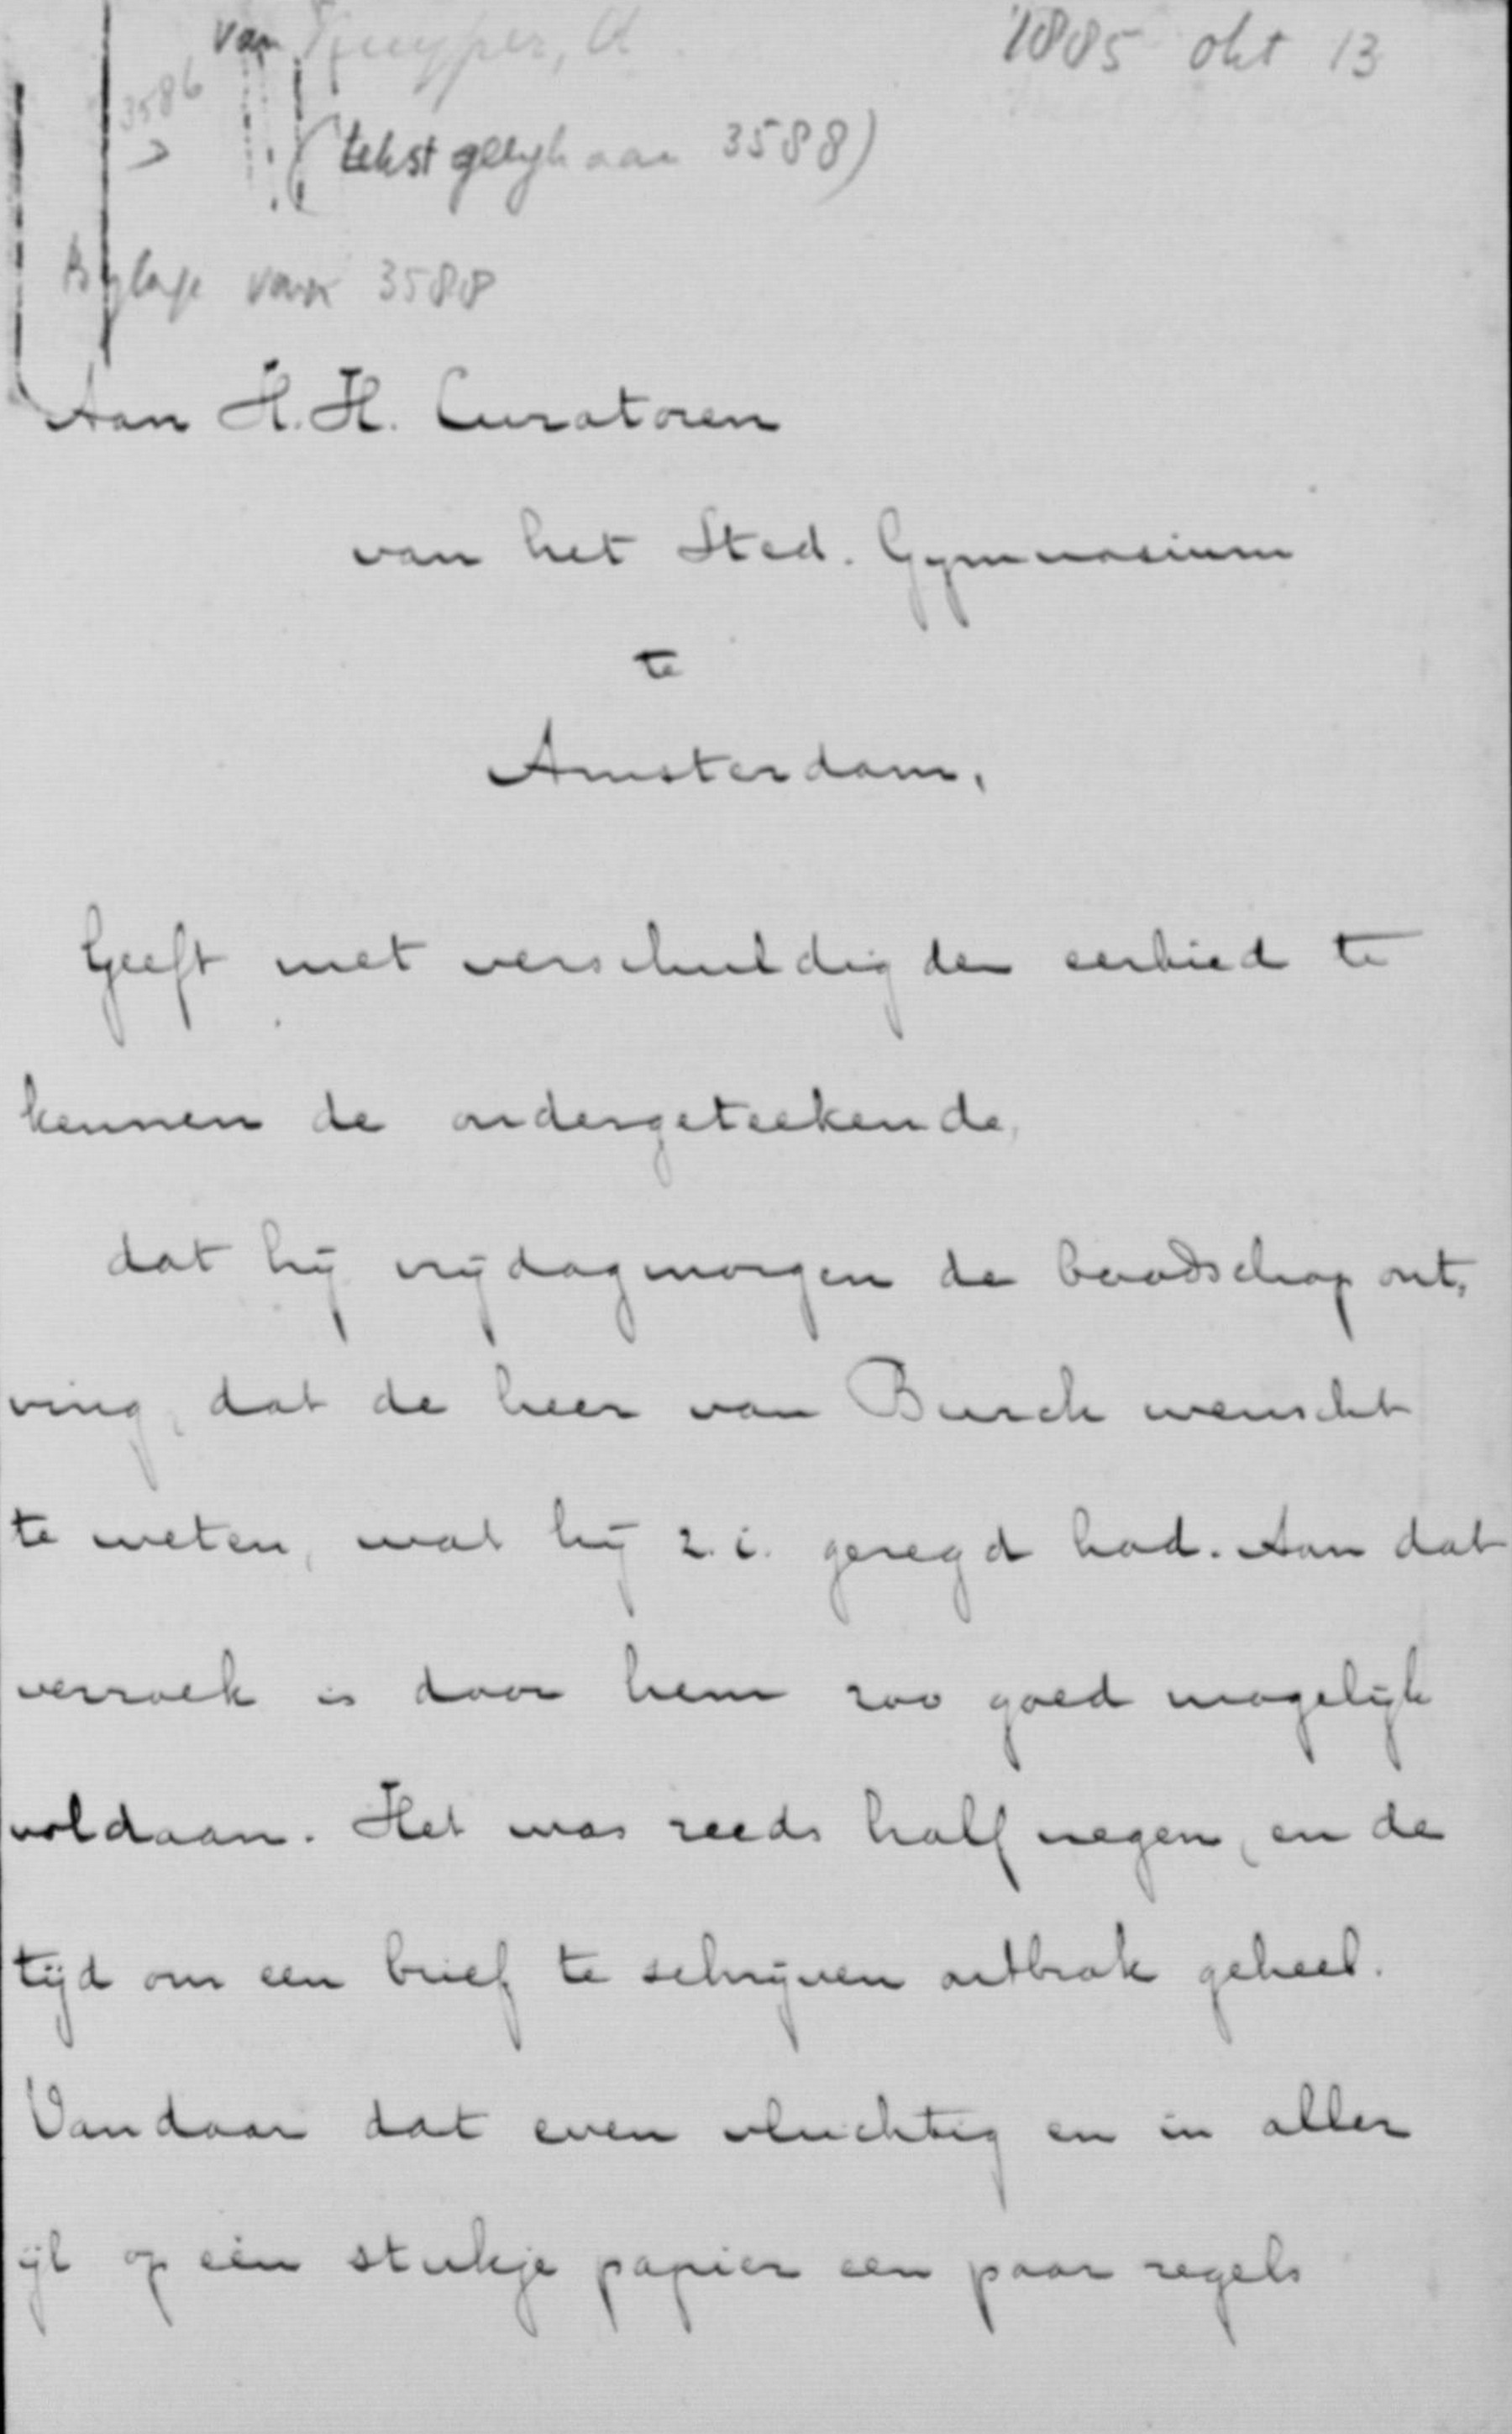 van Kuyper, A.
1885 okt 13
3586
>
(tekst gelijk aan 3588)
Bijlage van 3588
Aan H.H. Curatoren
van het Sted. Gymnasium
te
Amsterdam,
Geeft met verschuldigden eerbied te
kennen de ondergeteekende,
dat hij vrijdagmorgen de boodschap ont,
ving, dat de heer van Burch wenscht
te weten, wat hij z.i. gezegd had. Aan dat
verzoek is door hem zoo goed mogelijk
voldaan. Het was reeds half negen, en de
tijd om een brief te schrijven ontbrak geheel.
Vandaar dat even vluchtig en in aller
ijl op één stukje papier een paar regels